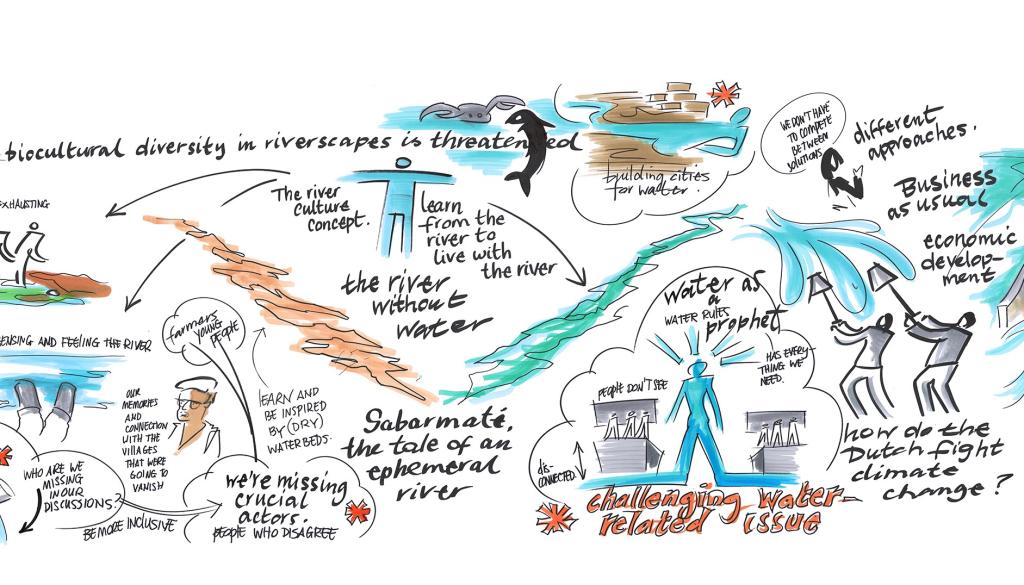 biocultural diversity in riverscapes is threatened
EXHAUSTING
The river
culture
concept.
learn
from the
river to
live with
the river
building cities
for water.
WE DON'T HAVE
TO COMPETE
BETWEEN
SOLUTIONS
different
approaches.
Business
as usual
economic
develop-
ment
the river
without
water
SENSING AND FEELING THE RIVER
farmers
YOUNG
PEOPLE
OUR
MEMORIES
AND
CONNECTION
WITH THE
VILLAGES
THAT WERE
GOING TO
VANISH
LEARN AND
BE INSPIRED
BY (DRY)
WATERBEDS.
Sabarmaté,
the tale of an
ephemeral
river
WHO ARE WE
MISSING
IN OUR
DISCUSSIONS?
BE MORE INCLUSIVE
we're missing
crucial
actors.
PEOPLE WHO DISAGREE
water as
a
WATER RULES
prophet
HAS EVERY-
THING WE
NEED.
PEOPLE DON'T SEE
DIS-
CONNECTED
challenging water-
related issue
how do the
Dutch fight
climate
change?